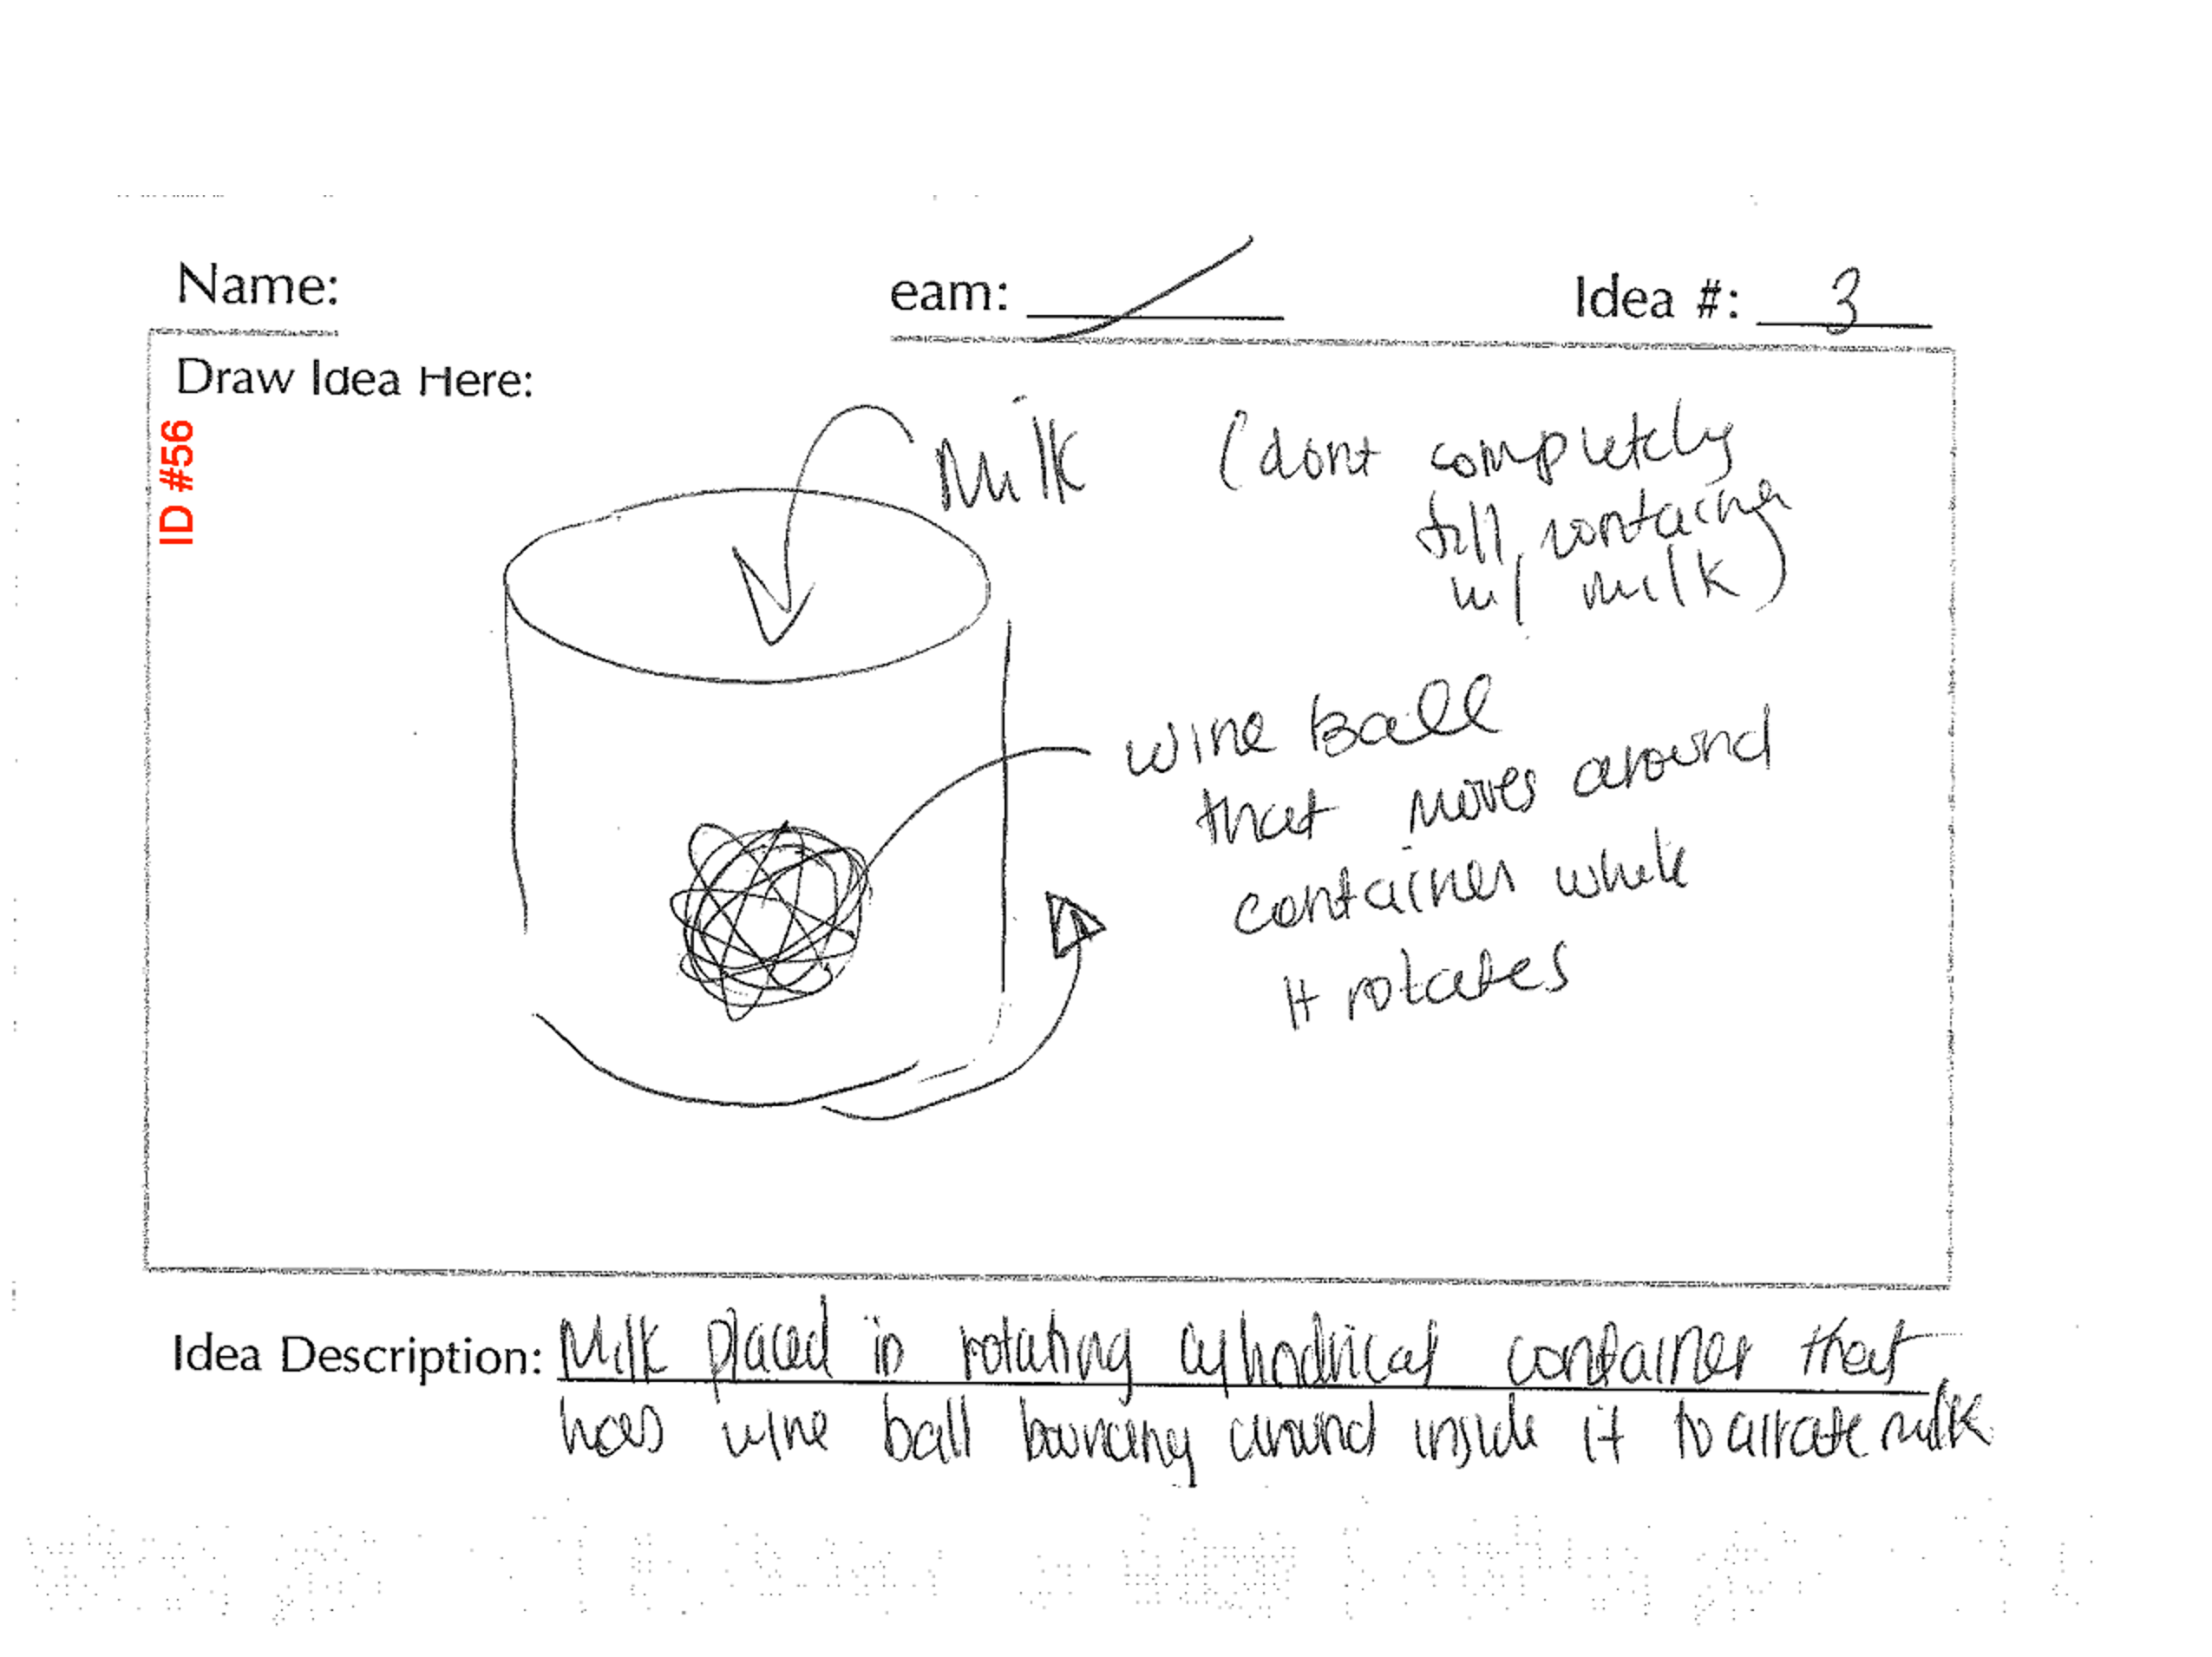 Name:
eam:
Idea #: 3
Draw Idea Here:
ID #56
Milk (dont completely
fill container
w/ milk)
wire Ball
that moves around
container while
it rotates
Idea Description: Milk placed in rotating cylindrical container that
has wire ball bouncing around inside it to airate milk